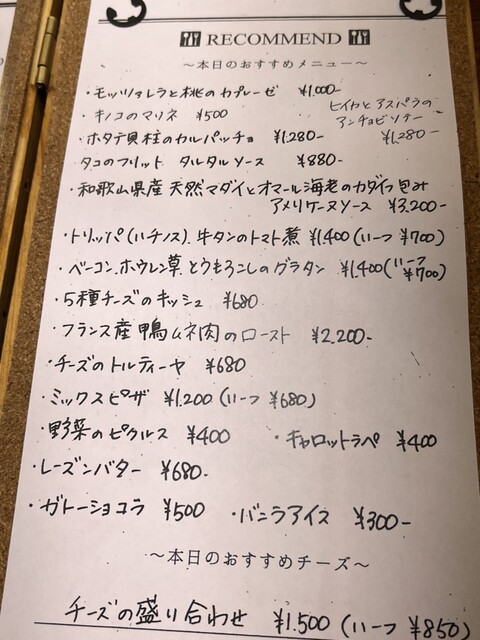 RECOMMEND
～本日のおすすめメニュー～
・モッツァレラと桃のカプレーゼ ¥1.000-
・キノコのマリネ ¥500
ヒイカとアスパラの
アンチョビソテー
¥1,280-
・ホタテ貝柱のカルパッチョ ¥1,280-
・タコのフリット タルタルソース ¥880-
・和歌山県産 天然マダイとオマール海老のカダイフ包み
アメリケーヌソース ¥3,200-
・トリッパ(ハチノス)、牛タンのトマト煮 ¥1,400(ハーフ ¥700)
・ベーコン、ホウレン草、とうもろこしのグラタン ¥1,400(ハーフ ¥700)
・5種チーズのキッシュ ¥680
・フランス産 鴨ムネ肉のロースト ¥2,200-
・チーズのトルティーヤ ¥680
・ミックスピザ ¥1,200(ハーフ ¥680)
・野菜のピクルス ¥400 ・キャロットラペ ¥400
・レーズンバター ¥680-
・ガトーショコラ ¥500 ・バニラアイス ¥300-
～本日のおすすめチーズ～
チーズの盛り合わせ ¥1,500(ハーフ ¥850)